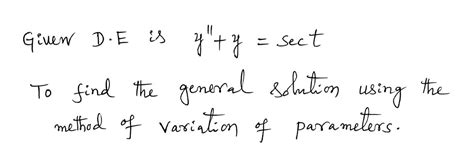 Given D.E is y"+y = sect
To find the general solution using the
method of variation of parameters.